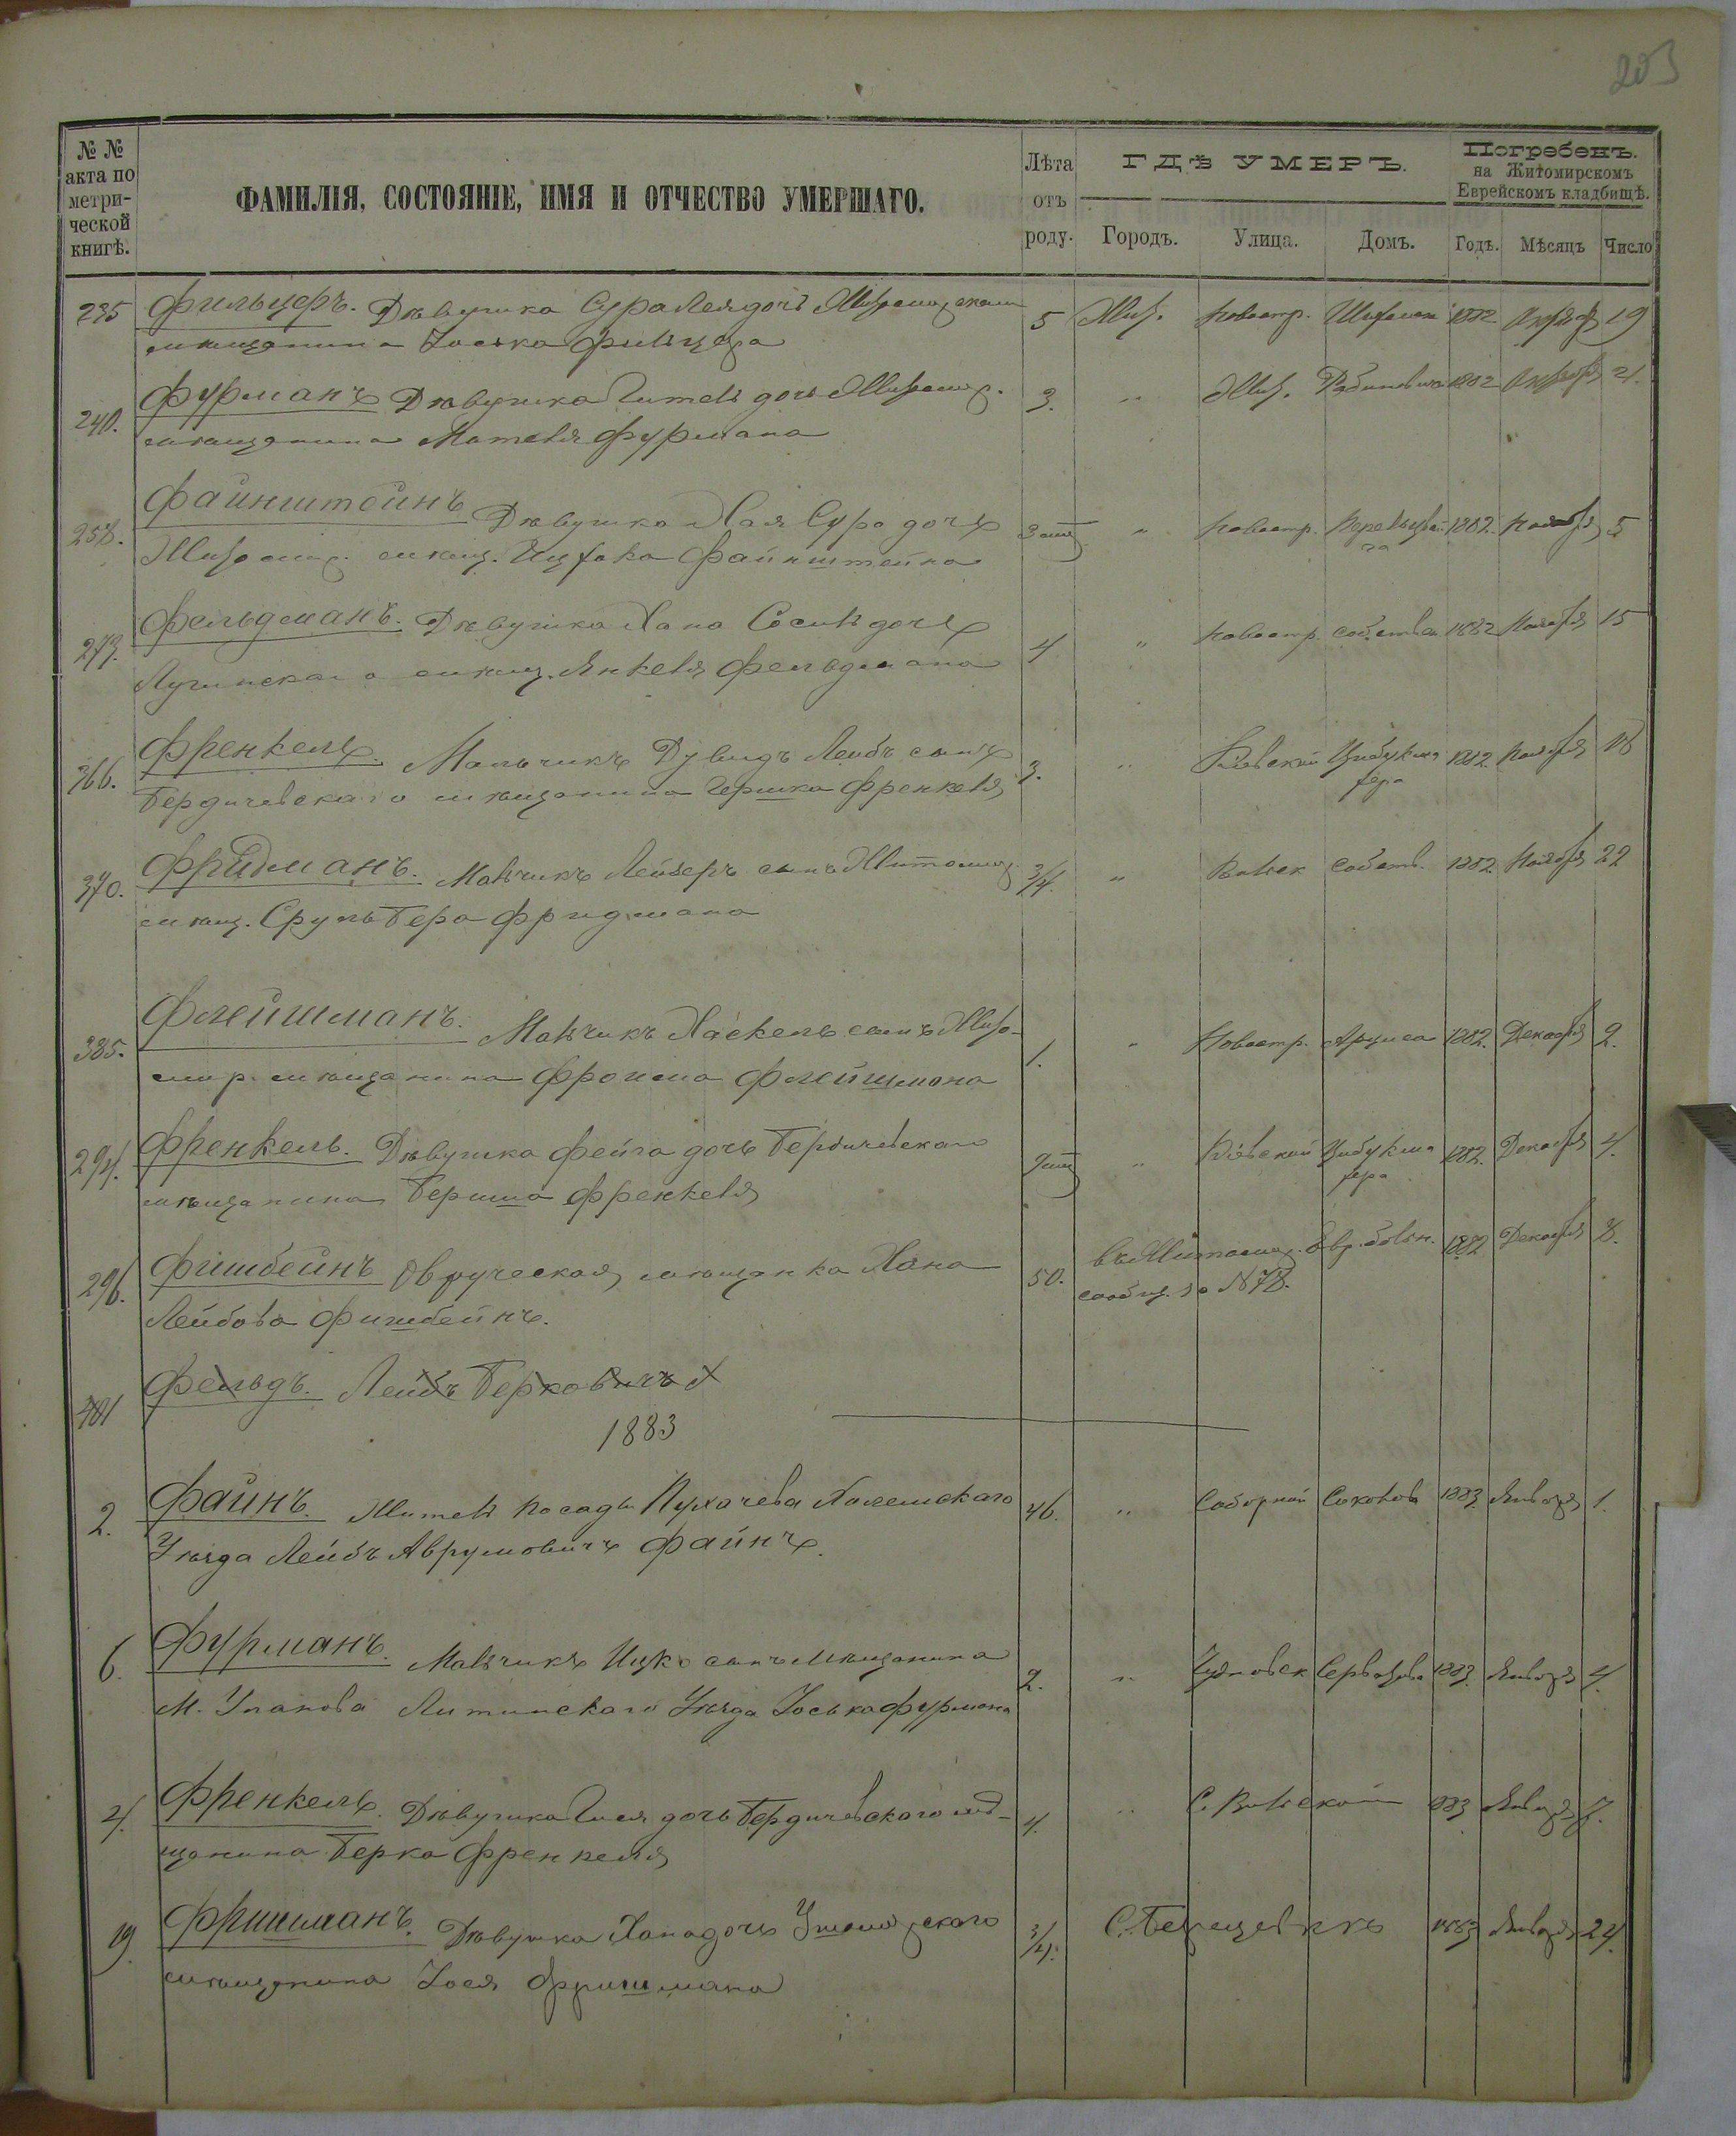 203
№ № акта по метрической книгѣ.
ФАМИЛІЯ, СОСТОЯНІЕ, ИМЯ И ОТЧЕСТВО УМЕРШАГО.
Лѣта отъ роду.
ГДѢ УМЕРЪ.
Городъ. Улица. Домъ.
Погребенъ.
на Житомирскомъ
Еврейскомъ кладбищѣ.
Годъ. Мѣсяцъ Число
235 Фильцеръ. Дѣвушка Сура Лея дочь 5 Жит. Новостр. 1882 Октяб 19
мѣщанина Иоська Фильцера
240. Фурманъ Дѣвушка Гитель дочь Житомир. 3. " 1882 Октября 21.
мѣщанина Мотеля Фурмана
Файнштейнъ Дѣвушка Хая Сура дочь " Новостр. 1882. Ноября 5
Житомир. мѣщ. Ицхока Файнштейна
273. Фельдманъ. Дѣвушка Хана Сосль дочь 4 " Новостр. собствен. 1882 Ноября 15
Лугинскаго мѣщ. Янкеля Фельдмана
366. Френкель. Мальчикъ Дувидъ Лейбъ сынъ 3. " Кіевской 1882 Ноября 18
Бердичевскаго мѣщанина Гершка Френкеля
370. Фридманъ. Мальчикъ Лейзеръ сынъ Житомир. 3/4. " Вильск собств. 1882 Ноября 22
мѣщ. Сруль Бера Фридмана
385. Флейшманъ. Мальчикъ Хаскель сынъ Жито- 1. " Новостр. 1882. Декабря 2.
мир. мѣщанина Фроима Флейшмана
294. Френкель. Дѣвушка Фейга дочь Бердичевскаго " Кіевской 1882. Декабря 4.
мѣщанина Берша Френкеля
296. Фишбейнъ Овручская мѣщанка Хана 50. въ Житомир. Евр. больн. 1882 Декабря 8.
Лейбова Фишбейнъ. сообщ. за №78.
481 Фельдъ. Лейбъ Берковичъ
1883
2. Файнъ. Житель посада Пухачева Холемскаго 46. " Соборной Соколов 1883. Января 1.
Уѣзда Лейбъ Аврумовичъ Файнъ.
6. Фурманъ. Мальчикъ Ицко сынъ мѣщанина 2. " Чудновск 1883. Января 4.
М. Уланова Литинскаго Уѣзда Иоська Фурмана
Френкель. Дѣвушка дочь Бердичевскаго мѣ- 4. " С. Вильской 1883 Января 7.
щанина Берка Френкеля
19. Фришманъ. Дѣвушка Хана дочь Ушомирскаго 3/4. 1883 Января 24.
мѣщанина Иося Фришмана